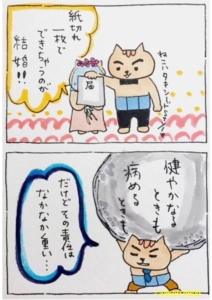 紙切れ
一枚で
できちゃうのが
結婚!!
ねこハタキシードでしょう
届
健やかなる
ときも
病める
ときも
だけどその責任は
なかなか重い…